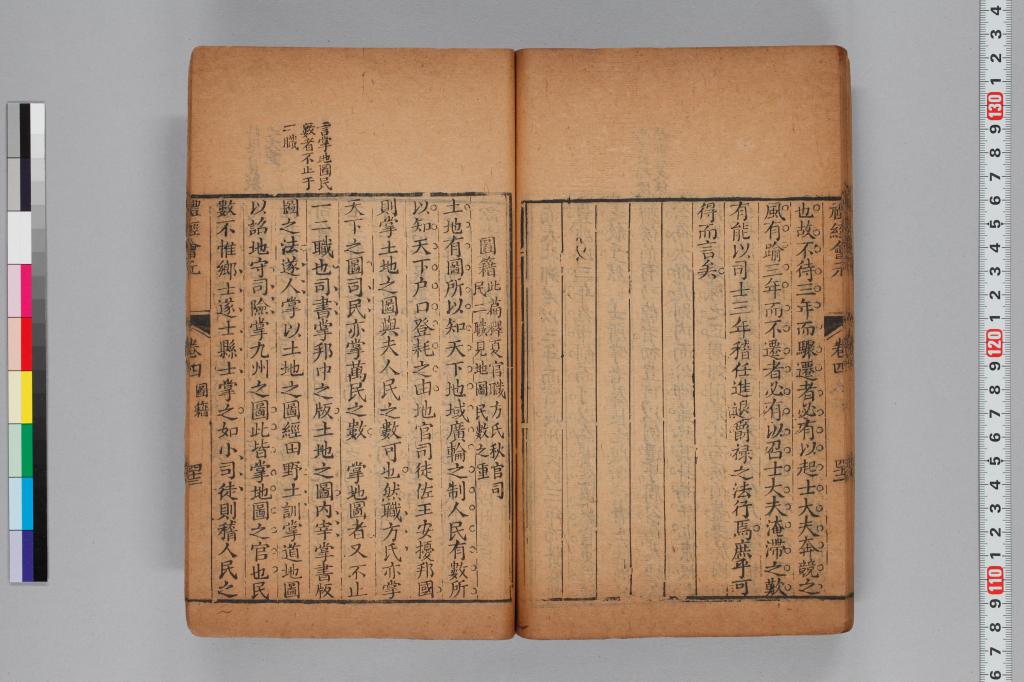 禮經會元
卷四
四十二
也故不待三年而驟遷者必有以起士大夫奔競之
風有踰三年而不遷者必有以召士大夫淹滯之歎
有能以司士三年稽任進退爵祿之法行焉庶乎可
得而言矣
圖籍
此篇釋夏官職方氏秋官司
民二職見地圖民數之重
土地有圖所以知天下地域廣輪之制人民有數所
以知天下户口登耗之由地官司徒佐王安擾邦國
則掌土地之圖與夫人民之數可也然職方氏亦掌
天下之圖司民亦掌萬民之數 掌地圖者又不止
言掌地圖民
數者不止于
二職
一二職也司書掌邦中之版土地之圖内宰掌書版
圖之法遂人掌以土地之圖經田野土訓掌道地圖
以詔地守司險掌九州之圖此皆掌地圖之官也民
數不惟鄉士遂士縣士掌之如小司徒則稽人民之
禮經會元
卷四
圖籍